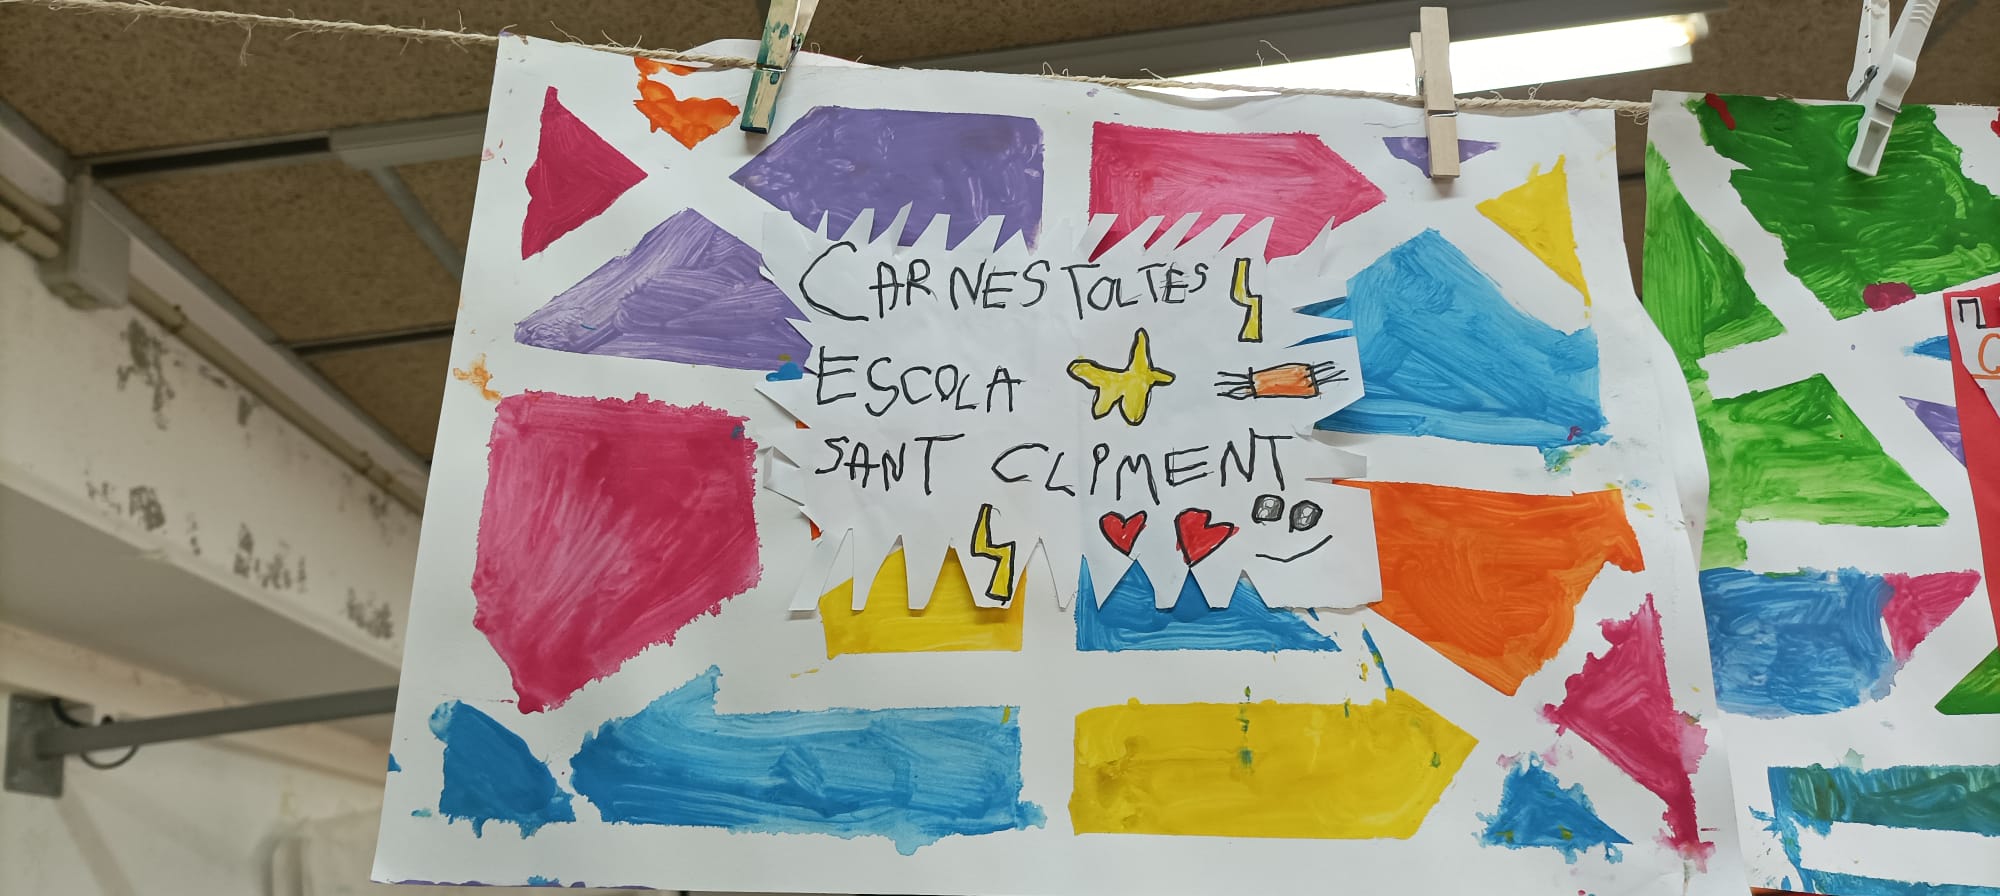 CARNESTOLTES
ESCOLA
SANT CLIMENT